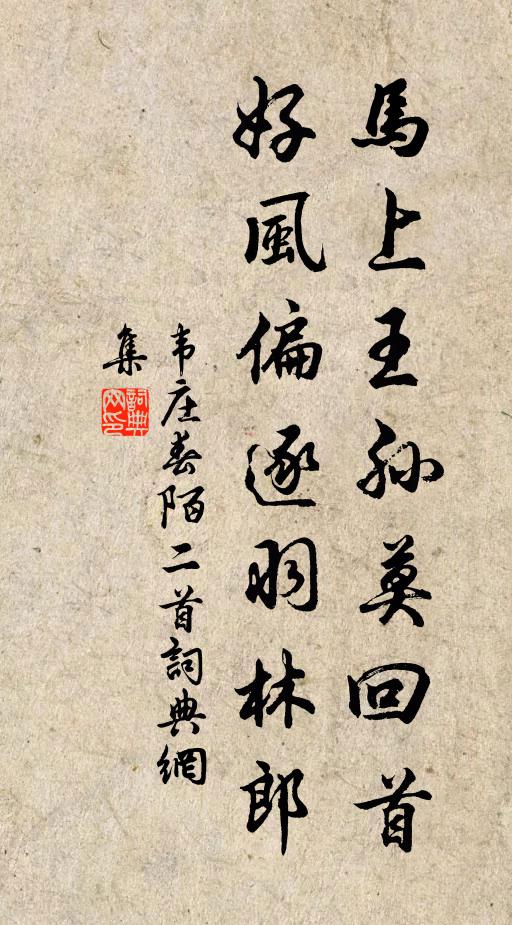 馬上王孫莫回首
好風偏逐羽林郎
韦庄春陌二首詞典網
集
詞典網印